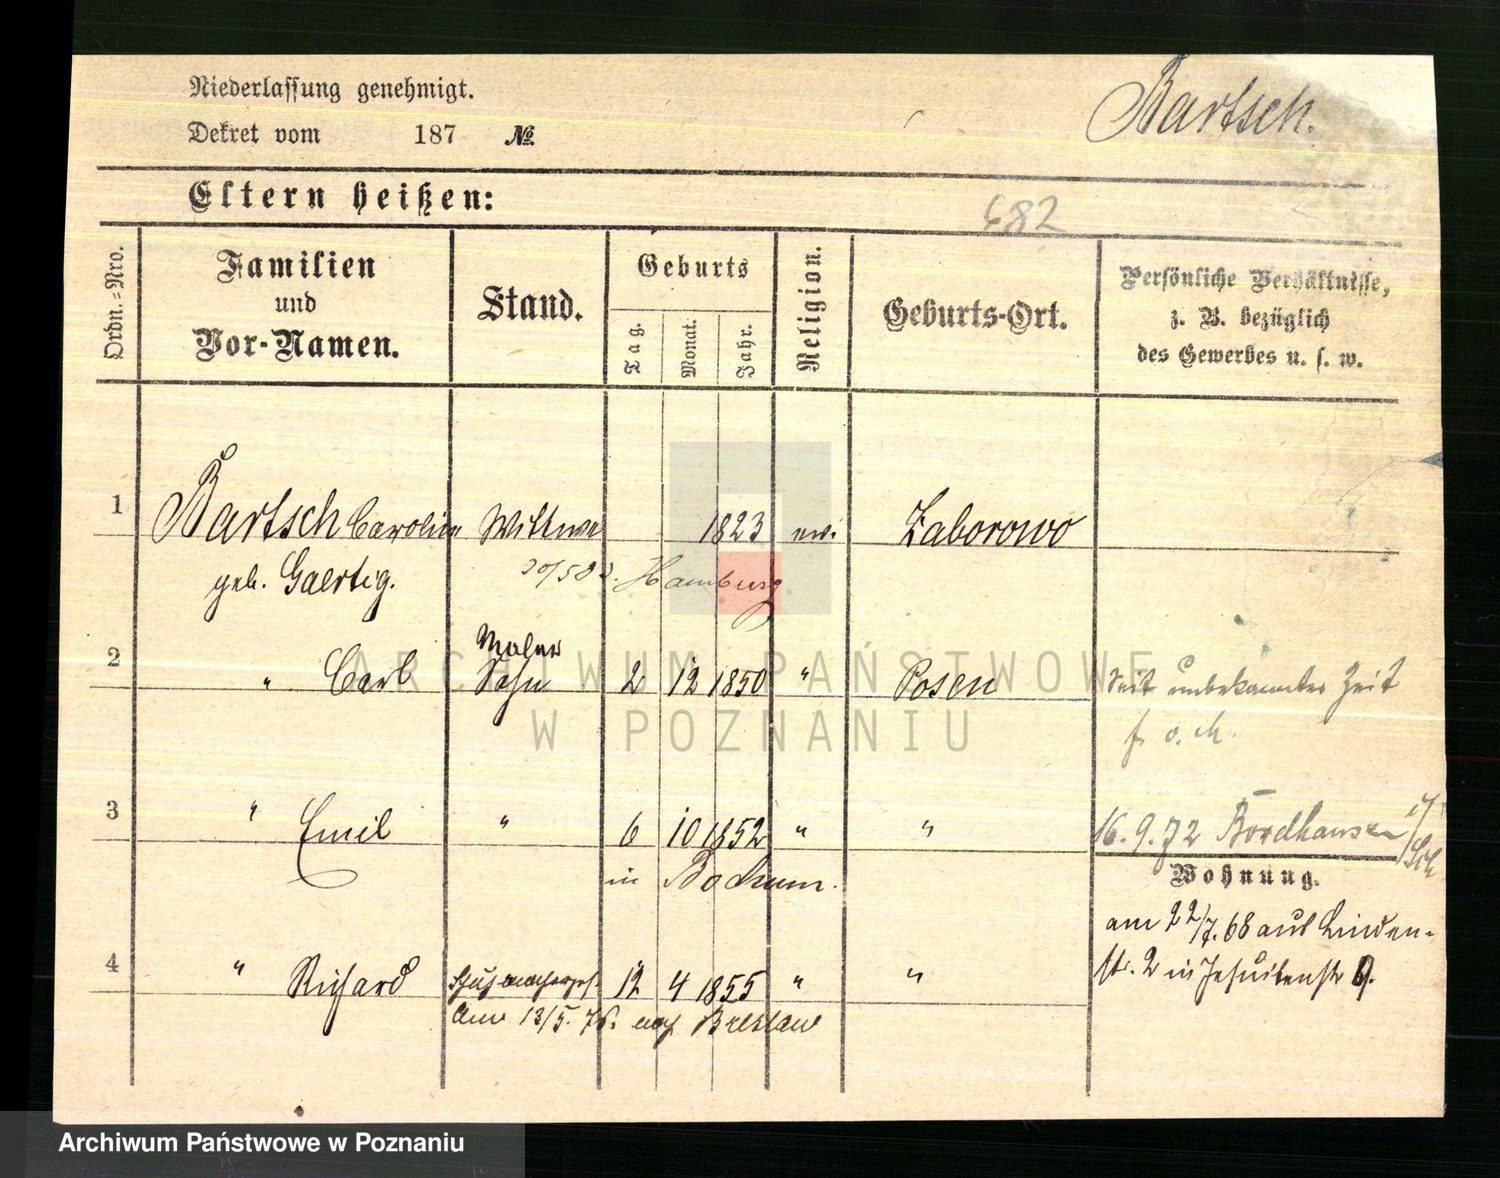 Niederlassung genehmigt.
Dekret vom 187 №
Bartsch.
Eltern heißen:
682
Ordn.-Nro.
Familien
und
Vor-Namen.
Stand.
Geburts
Tag.
Monat.
Jahr.
Religion.
Geburts-Ort.
Persönliche Verhältnisse,
z. B. bezüglich
des Gewerbes u. s. w.
1 Bartsch Carolin Wittwe 1823 ev. Zaborowo
geb. Gaertig. Hamburg
Maler
2 " Carl Sohn 2 12 1850 " Posen seit unbekannter Zeit
f. o. M.
3 " Emil " 6 10 1852 " " 16.9.72
in Bochum.
Wohnung.
am 22/7. 68 aus Linden-
str. 2 in Jesuitenstr 9.
4 " Richard 12 4 1855 " "
am 13/5. 76. nach Breslau
ARCHIWUM PAŃSTWOWE
W POZNANIU
Archiwum Państwowe w Poznaniu